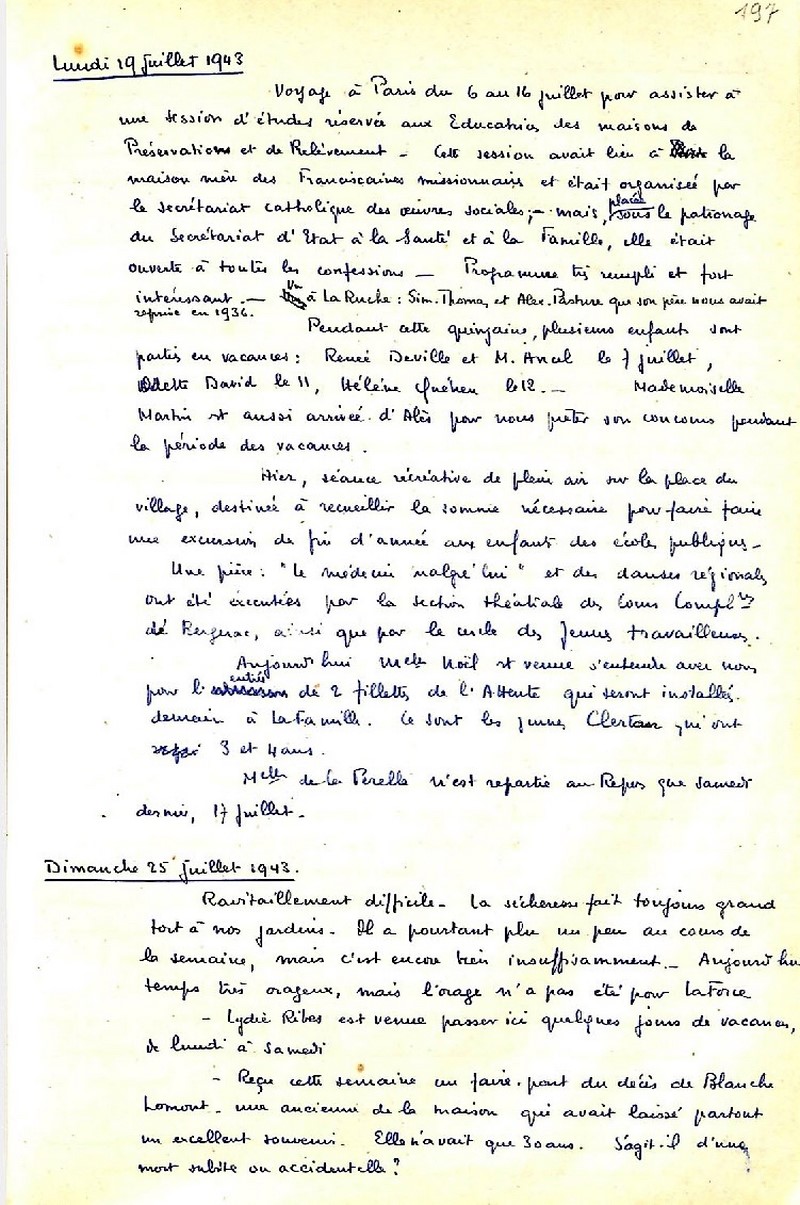 197
Lundi 19 Juillet 1943
Voyage à Paris du 6 au 16 juillet pour assister à
une session d'études réservée aux Educatrices des maisons de
Préservation et de Relèvement - Cette session avait lieu à la
maison mère des Franciscaines missionnaires et était organisée par
le secrétariat catholique des œuvres sociales; - mais, placée sous le patronage
du Secrétariat d'Etat à la Santé et à la Famille, elle était
ouverte à toutes les confessions - Programme très rempli et fort
intéressant. - Vu à La Ruche : Sim. Thomas et Alex. Pasture que son père nous avait
reprise en 1936.
Pendant cette quinzaine, plusieurs enfants sont
parties en vacances : Renée Deville et M. Ancel le 7 juillet,
Odette David le 11, Hélène Quéhen le 12. - Mademoiselle
Martin est aussi arrivée d'Alès pour nous prêter son concours pendant
la période des vacances.
Hier, séance récréative de plein air sur la place du
village, destinée à recueillir la somme nécessaire pour faire faire
une excursion de fin d'année aux enfants des écoles publiques -
Une pièce : "Le médecin malgré lui" et des danses régionales
ont été exécutées par la section théâtrale des Cours Compl.res
de Bergerac, ainsi que par le cercle des Jeunes travailleuses.
Aujourd'hui Melle Noël est venue s'entendre avec nous
pour l'entrée de 2 fillettes de l'Attente qui seront installées
demain à La Famille. Ce sont les jeunes qui ont
3 et 4 ans.
Melle de la Perelle n'est repartie au Repos que samedi
dernier, 17 Juillet.
Dimanche 25 Juillet 1943.
Ravitaillement difficile - La sécheresse fait toujours grand
tort à nos jardins - Il a pourtant plu un peu au cours de
la semaine, mais c'est encore bien insuffisamment. - Aujourd'hui
temps très orageux, mais l'orage n'a pas été pour Laforce
- Lydie Ribes est venue passer ici quelques jours de vacances,
de lundi à samedi
- Reçu cette semaine un faire-part du décès de Blanche
Lomont - une ancienne de la maison qui avait laissé partout
un excellent souvenir. Elle n'avait que 30 ans. S'agit-il d'une
mort subite ou accidentelle ?